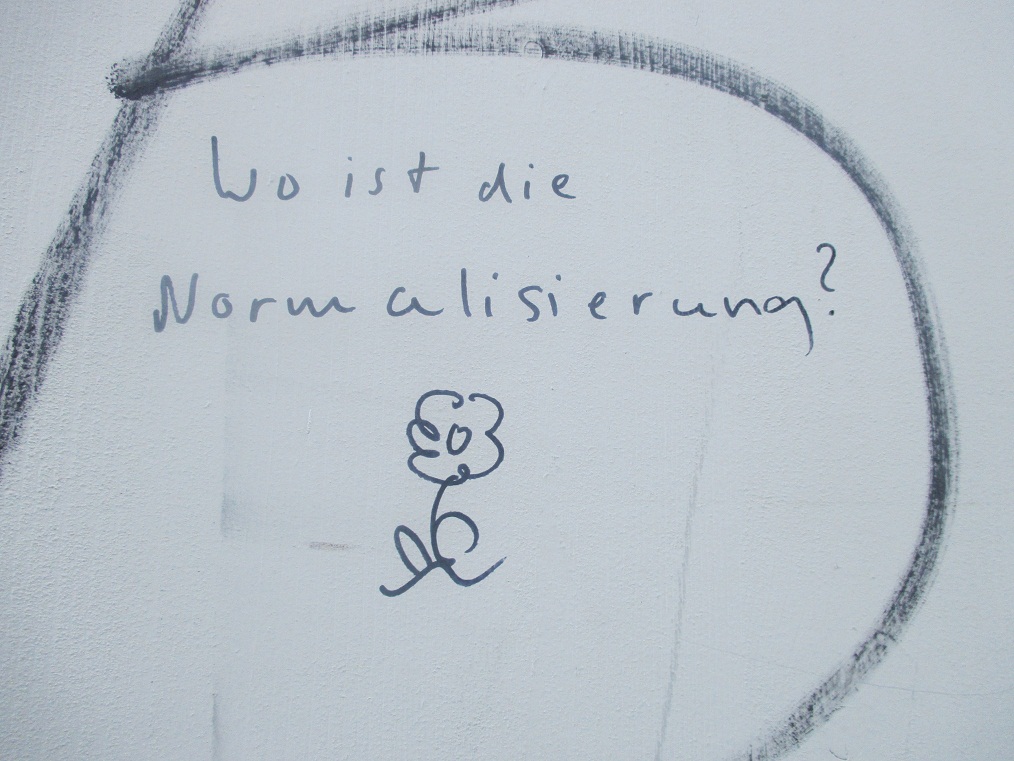 Wo ist die
Normalisierung?